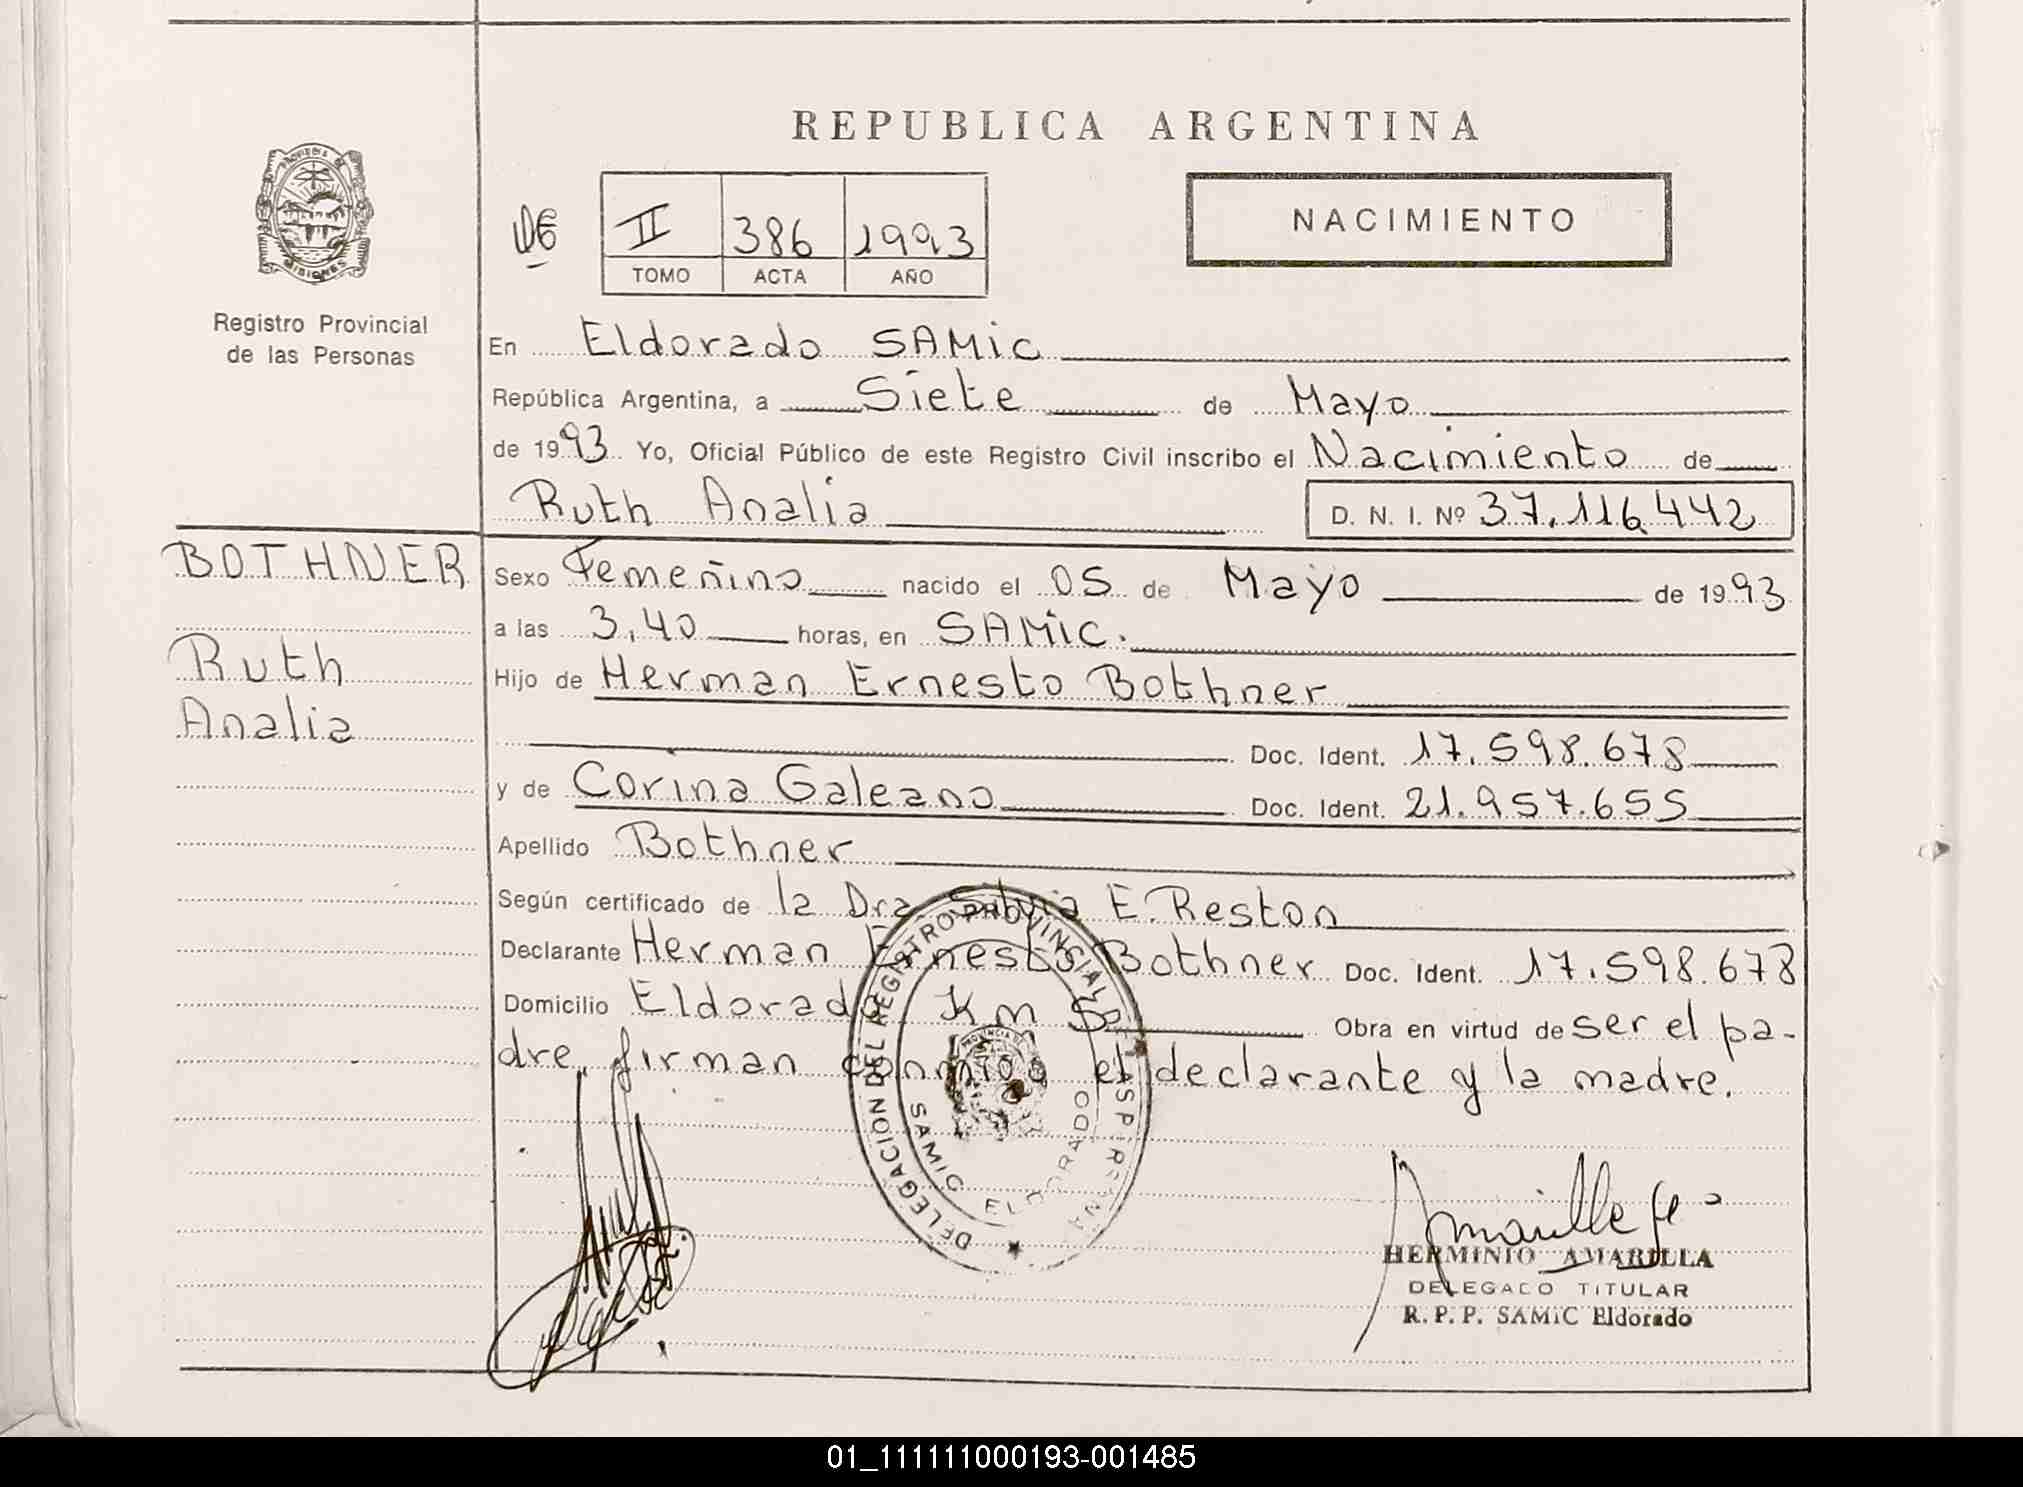 REPUBLICA ARGENTINA
PROVINCIA DE
MISIONES
Registro Provincial
de las Personas
II 386 1993
TOMO ACTA AÑO
NACIMIENTO
En Eldorado SAMIC
República Argentina, a Siete de Mayo
de 1993 Yo, Oficial Público de este Registro Civil inscribo el Nacimiento de
Ruth Analia D. N. I. Nº 37.116.442
BOTHNER
Ruth
Analia
Sexo Femenino nacido el 05 de Mayo de 1993
a las 3,40 horas, en SAMIC.
Hijo de Herman Ernesto Bothner
Doc. Ident. 17.598.678
y de Corina Galeano Doc. Ident. 21.957.655
Apellido Bothner
Según certificado de la Dra Silvia E. Reston
Declarante Herman Ernesto Bothner Doc. Ident. 17.598.678
Domicilio Eldorado Km Obra en virtud de ser el pa-
dre, firman conmigo el declarante y la madre.
DELEGACION DEL REGISTRO PROVINCIAL DE
SAMIC ELDORADO
HERMINIO AMARILLA
DELEGADO TITULAR
R. P. P. SAMIC Eldorado
01_111111000193-001485